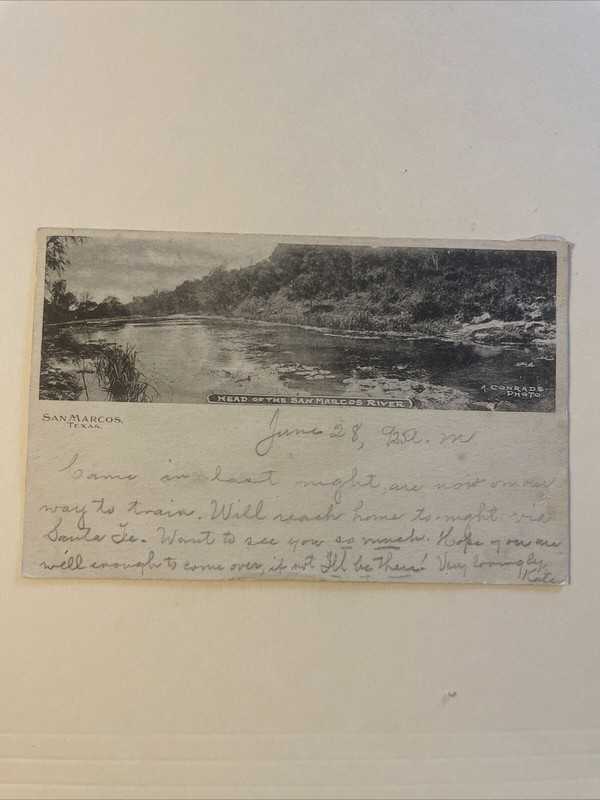 HEAD OF THE SAN MARCOS RIVER
A. CONRADS
PHOTO.
SAN MARCOS,
TEXAS.
June 28, a.m
Came in last night, are now on our
way to train. Will reach home to-night via
Santa Fe. Want to see you so much. Hope you are
well enough to come over, if not I'll be there! Very lovingly,
Kate